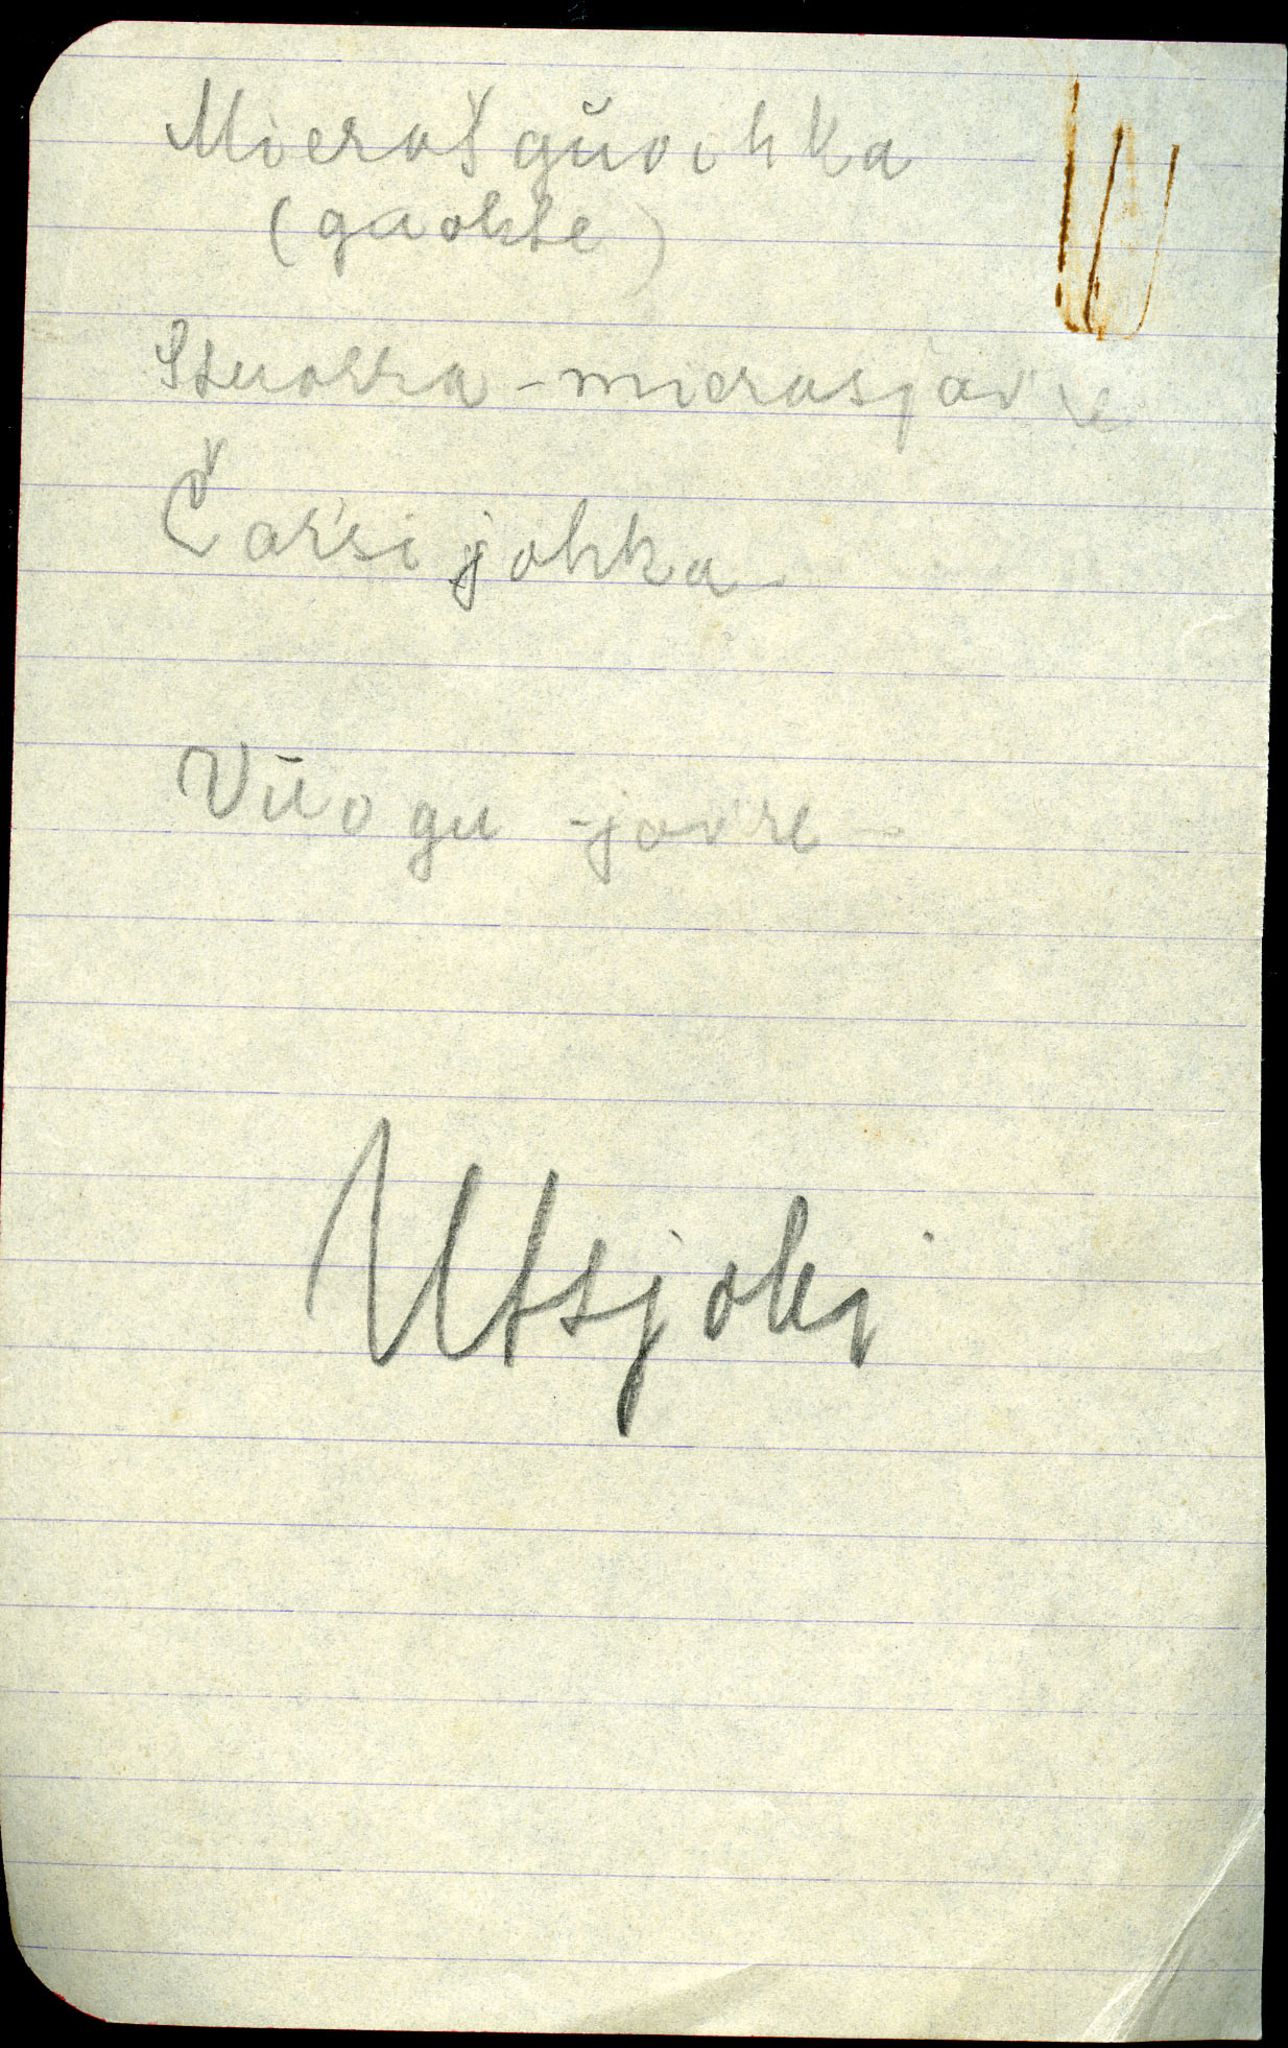 Mieraš gūoihka
(guokte)
Stuorra-mierasjav're
Čar'si johka -
Vūogu -jav're -
Utsjoki